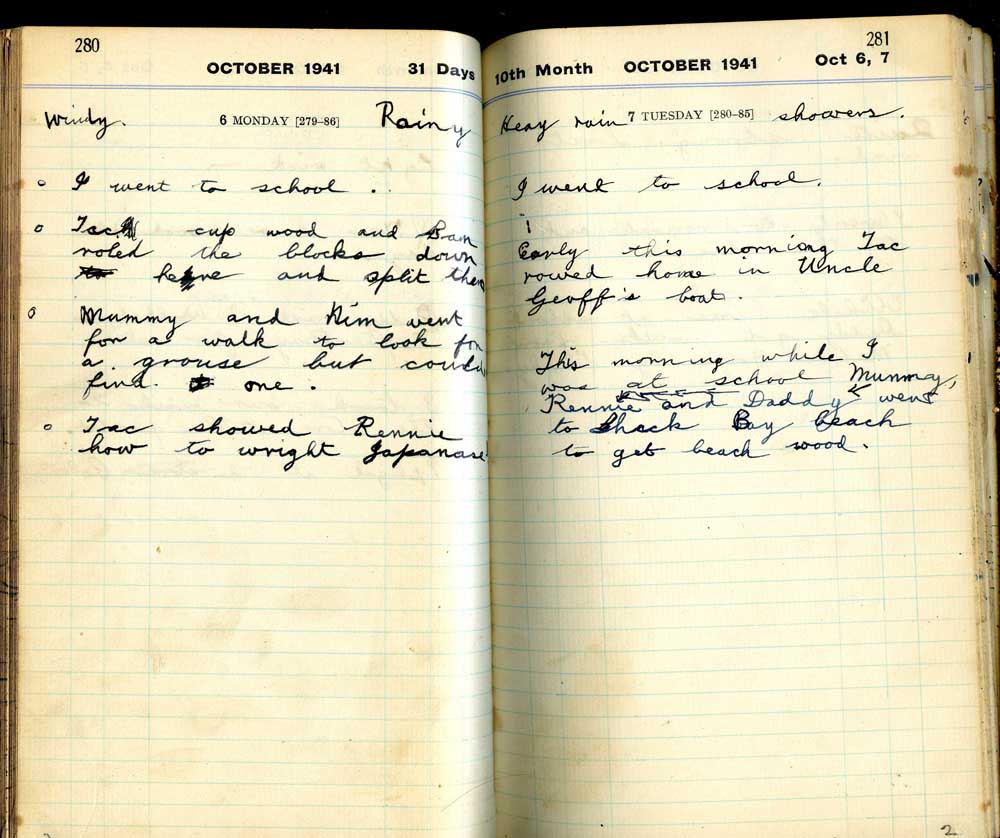 280
OCTOBER 1941 31 Days
Windy. 6 MONDAY [279–86] Rainy
I went to school . .
cup wood and Sam
roled the blocks down
and split them
Mummy and Kim went
for a walk to look for
a grouse but could
find. one .
Tac showed Rennie
how to wright Japanase
281
10th Month OCTOBER 1941 Oct 6, 7
Heay rain 7 TUESDAY [280–85] showers.
I went to school.
Early this morning Tac
rowed home in Uncle
Geoff's boat.
This morning while I
was at school Mummy,
Rennie and Daddy went
to Shack Bay beach
to get beach wood.
2